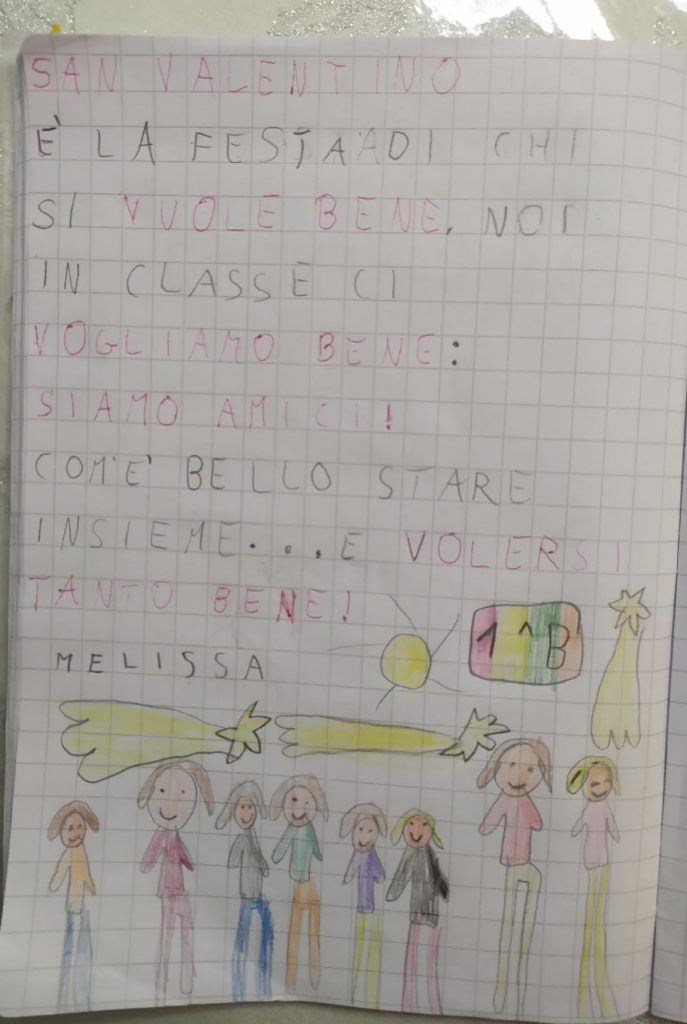 SAN VALENTINO
È LA FESTAADI CHI
SI VUOLE BENE. NOI
IN CLASSE CI
VOGLIAMO BENE:
SIAMO AMICI!
COM'E' BELLO STARE
INSIEME....E VOLERSI
TANTO BENE!
MELISSA
1^B